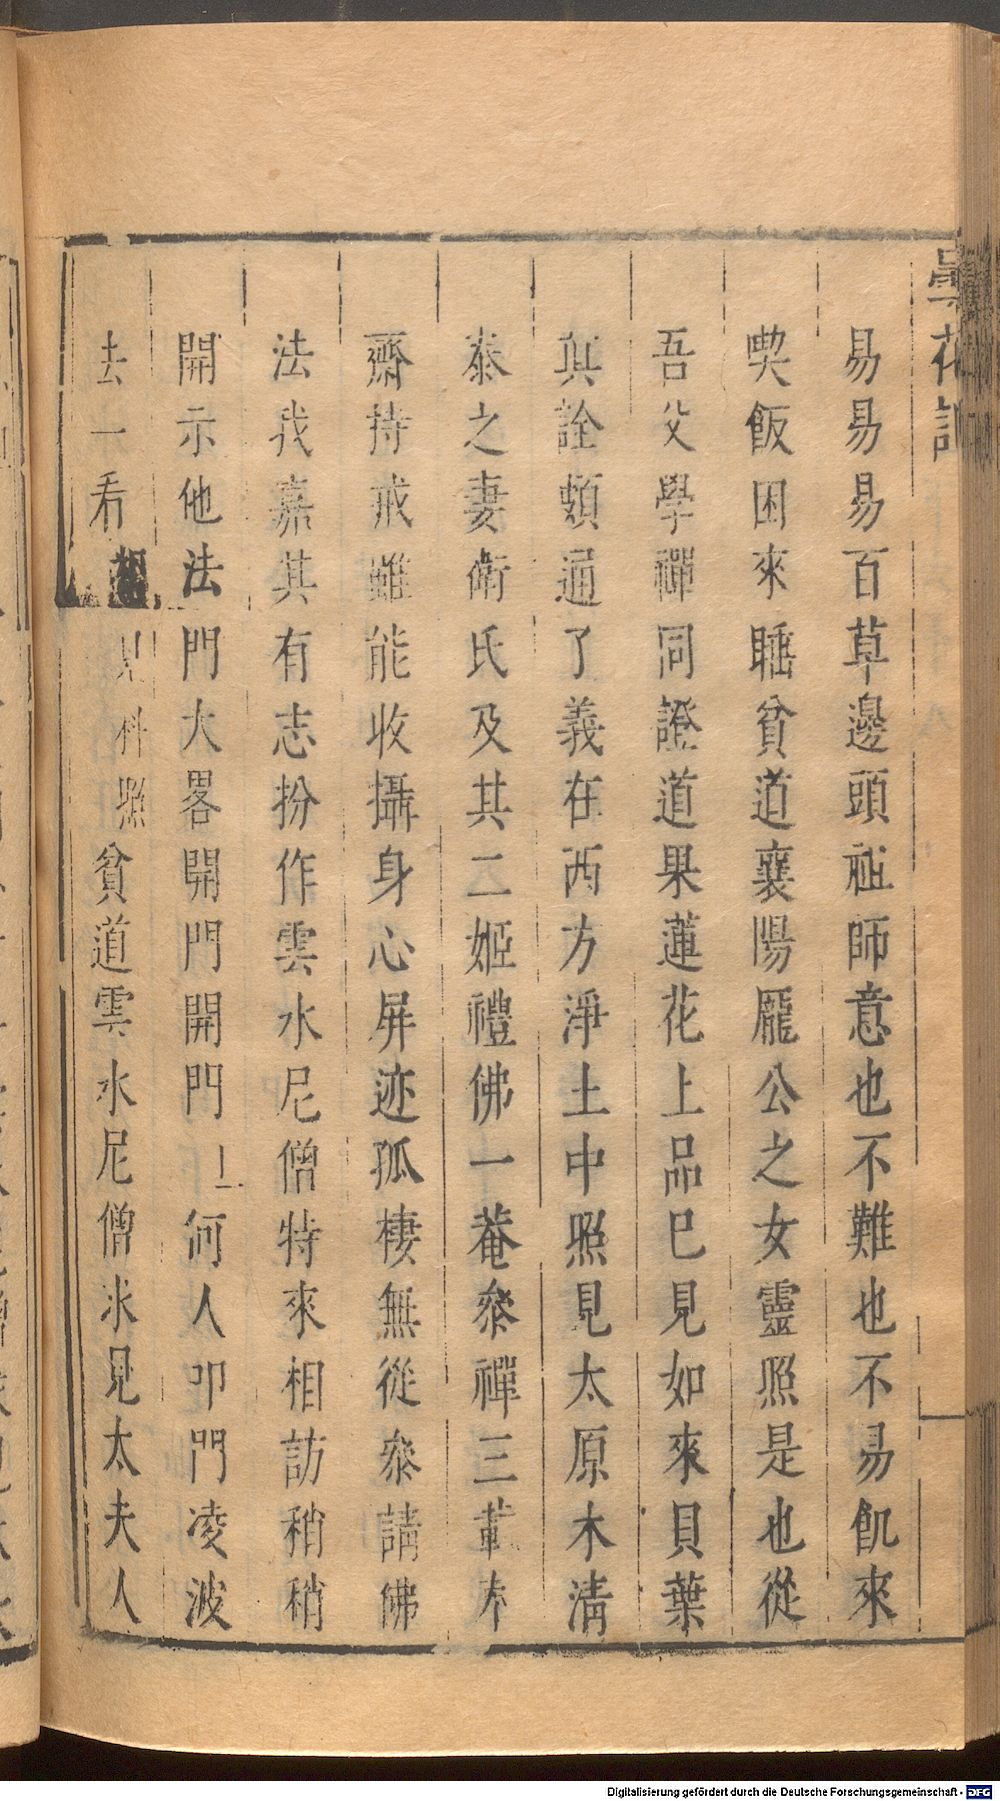 曇花記
易易易百草邊頭祖師意也不難也不易飢來
喫飯困來睡貧道襄陽龐公之女靈照是也從
吾父學禪同證道果蓮花上品已見如來貝葉
真詮頗通了義在西方淨土中照見太原木清
泰之妻衛氏及其二姬禮佛一菴叅禪三載奉
齋持戒雖能收攝身心屏迹孤棲無從叅請佛
法我嘉其有志扮作雲水尼僧特來相訪稍稍
開示他法門大畧開門開門 上 何人叩門凌波
去一看 見 科 照 貧道雲水尼僧求見太夫人
Digitalisierung gefördert durch die Deutsche Forschungsgemeinschaft - DFG